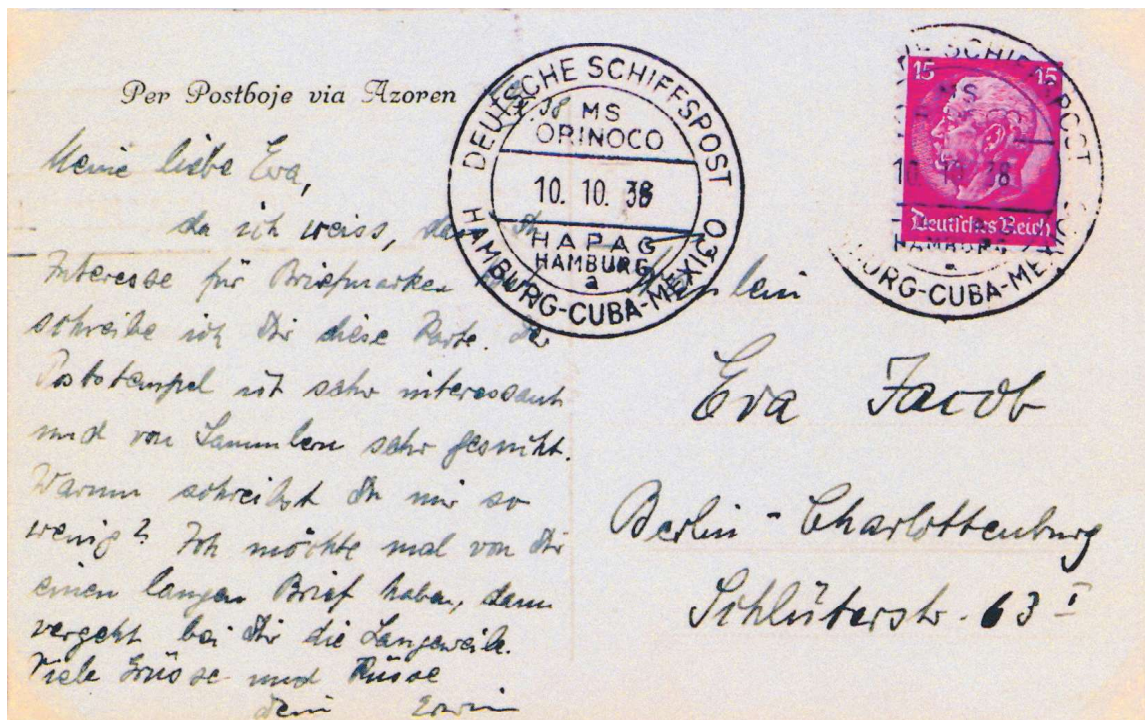 Per Postboje via Azoren
DEUTSCHE SCHIFFSPOST
MS
ORINOCO
10. 10. 38
HAPAG
HAMBURG
a
HAMBURG-CUBA-MEXICO
15 15
Deutsches Reich
SCHIFFSPOST
MS
10. 10. 38
HAMBURG
a
HAMBURG-CUBA-MEXICO
Meine liebe Eva,
da ich weiss, dass Du
Interesse für Briefmarken
schreibe ich Dir diese Karte. Der
Poststempel ist sehr interessant
und von Sammlern sehr gesucht.
Warum schreibst Du mir so
wenig? Ich möchte mal von Dir
einen langen Brief haben, dann
vergeht bei Dir die Langeweile.
Viele Grüsse und Küsse
Dein Erwin
Fräulein
Eva Jacob
Berlin - Charlottenburg
Schlüterstr. 63 I